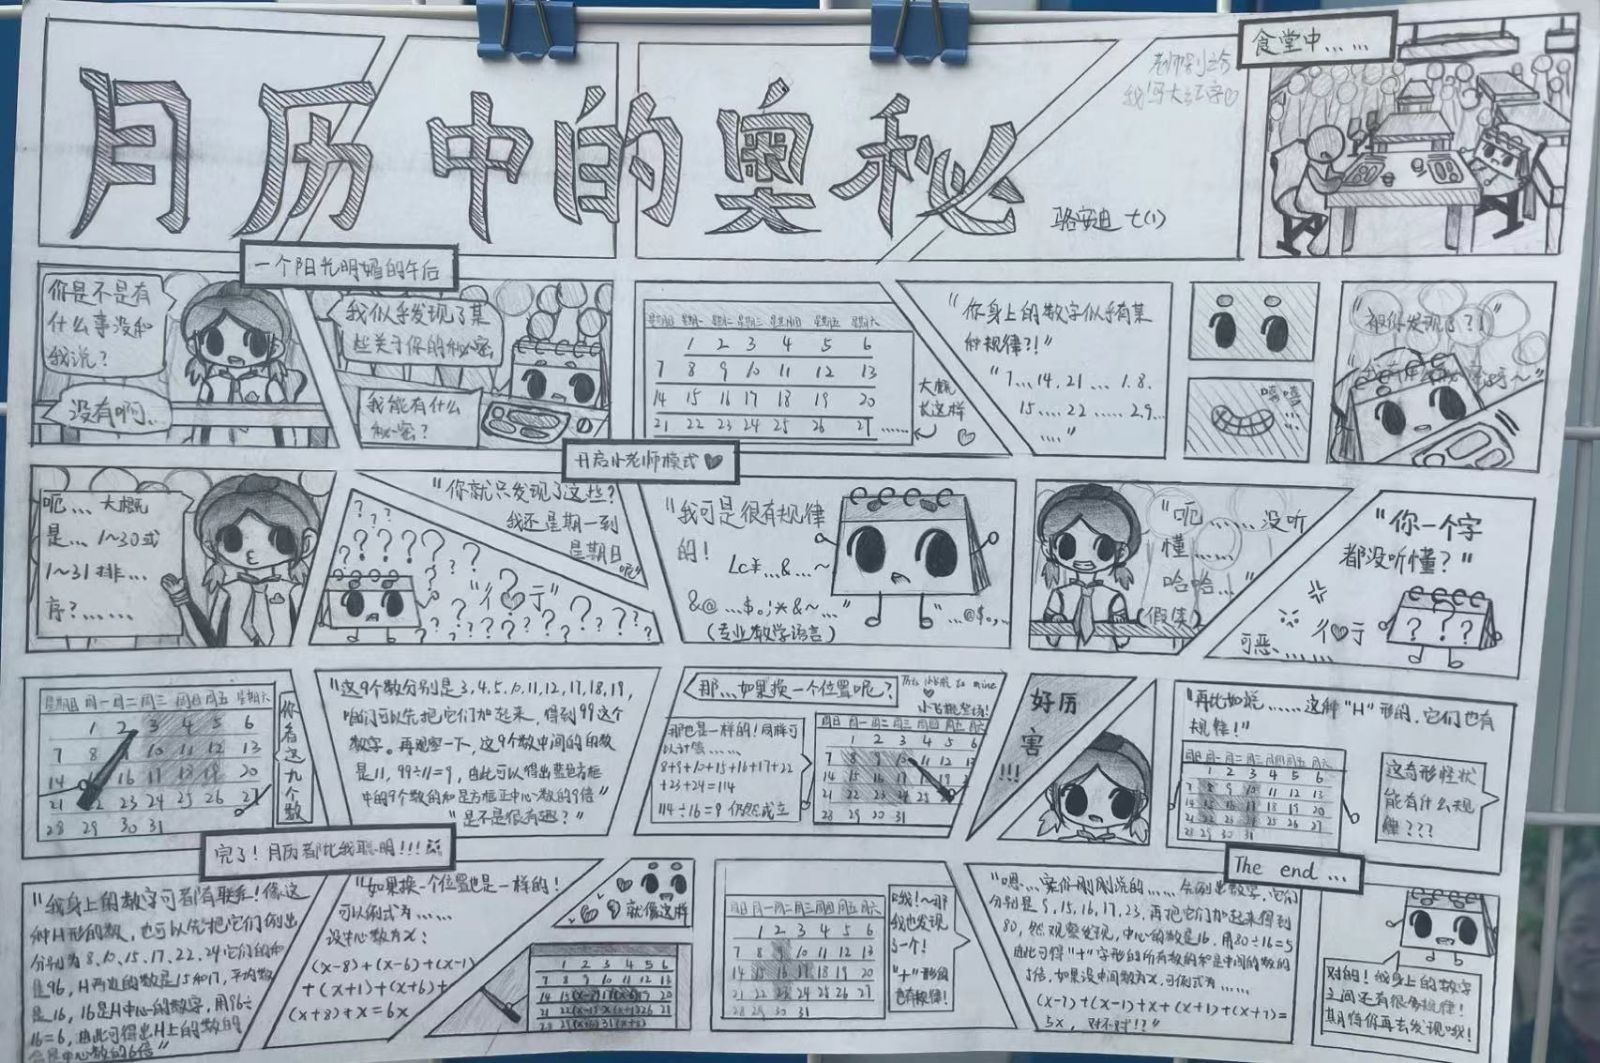 食堂中……
老师别之符
我!写大红字♡
月历中的奥秘
骆安迪 七(1)
一个阳光明媚的午后
你是不是有
什么事没和
我说?
没有啊..
我似乎发现了某
些关于你的秘密
我能有什么
秘密?
星期日 星期一 星期二 星期三 星期四 星期五 星期六
1 2 3 4 5 6
7 8 9 10 11 12 13
14 15 16 17 18 19 20
21 22 23 24 25 26 27……
大概
长这样
"你身上的数字似乎有某
种规律?!"
"7…14.21…1.8.
15….22…..2.9…
…."
嘻嘻
"被你发现了?!"
开启小老师模式♥
呃…大概
是…1~30或
1~31排…
序?……
"你就只发现了这些?
我还星期一到
星期日呢"
???
"我可是很有规律
的!
&@…$。;*&~…"
(专业数学语言)
"…@$。…
"呃……没听
懂……
哈哈…"
(假笑)
"你一个字
都没听懂?"
可恶……
???
星期日 周一 周二 周三 周四 周五 星期六
1 2 3 4 5 6
7 8 10 11 12 13
14 16 17 18 19 20
21 22 23 24 25 26 27
28 29 30 31
你看这九个数
"这9个数分别是3,4,5,10,11,12,17,18,19,
咱们可以先把它们加起来,得到99这个
数字。再观察一下,这9个数中间的的数
是11,99÷11=9,由此可以得出蓝色方框
中的9个数的和是方框正中心数的9倍"
"是不是很有趣?"
那…如果换一个位置呢?
那也是一样的!同样可
以计算……
8+9+10+15+16+17+22
+23+24=114
114÷16=9 仍然成立
周日 周一 周二 周三 周四 周五 周六
1 2 3 4 5 6
7 8 9 10 11 12 13
14 15 16 17 18 19
21 22 23 24 25
28 29 30 31
好厉
害
!!!
"再比如说……这种"H"形的,它们也有
规律!"
周日 周一 周二 周三 周四 周五 周六
1 2 3 4 5 6
7 8 9 10 11 12 13
14 15 16 17 18 19 20
21 22 23 24 25 26 27
28 29 30 31
这奇形怪状
能有什么规
律???
完了!月历都比我聪明!!!
The end…
"我身上的数字可都有联系!像这
种H形的数,也可以先把它们列出
分别为8,10,15,17,22,24它们的和
是96,H两边的数是15和17,平均数
是16,16是H中心的数字,用96÷
16=6,由此可得出H上的数的
和是中心数的6倍"
"如果换一个位置也是一样的!
可以列式为……
设中心数为x:
(x-8)+(x-6)+(x-1)
+(x+1)+(x+6)+
(x+8)+x=6x
就像这样
1 2 3 4 5 6
7 8 9 10 11 12 13
周日 周一 周二 周三 周四 周五 周六
1 2 3 4 5 6
7 8 9 10 11 12 13
14 15 16 17 18 19 20
21 22 23 24 25 26 27
28 29 30 31
哦!~那
我也发现
一个!
"+"形的
也有规律!
"嗯…按你刚刚说的……先列出数字,它们
分别是9,15,16,17,23,再把它们加起来得到
80,然观察发现,中心的数是16,用80÷16=5
由此可得"+"字形的所有数的和是中间的数的
5倍,如果设中间数为x,可列式为……
(x-7)+(x-1)+x+(x+1)+(x+7)=
5x,对不对!?"
对的!我身上的数字
之间还有很多规律!
期待你再去发现哦!